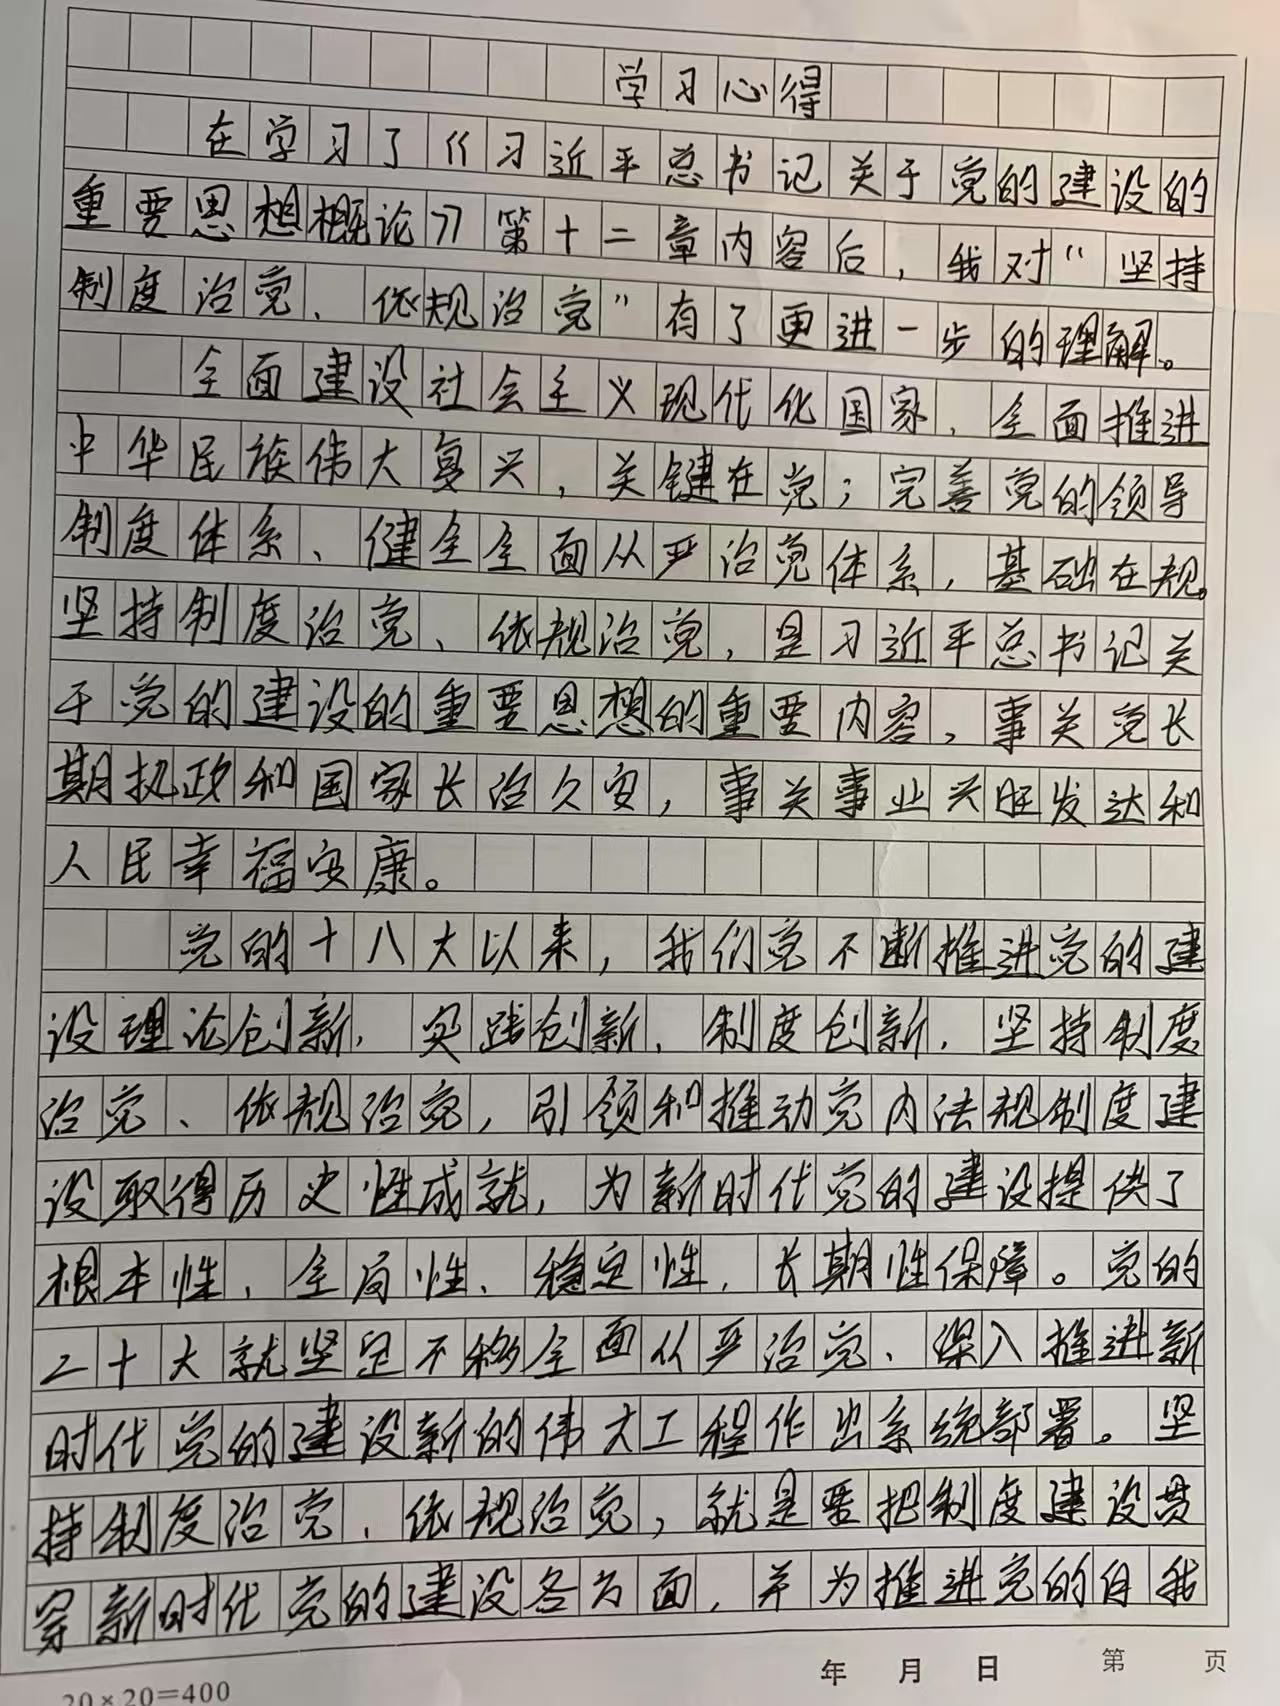 学习心得
在学习了《习近平总书记关于党的建设的
重要思想概论》第十二章内容后，我对“坚持
制度治党、依规治党”有了更进一步的理解。
全面建设社会主义现代化国家、全面推进
中华民族伟大复兴，关键在党；完善党的领导
制度体系、健全全面从严治党体系，基础在规。
坚持制度治党、依规治党，是习近平总书记关
于党的建设的重要思想的重要内容，事关党长
期执政和国家长治久安，事关事业兴旺发达和
人民幸福安康。
党的十八大以来，我们党不断推进党的建
设理论创新、实践创新、制度创新，坚持制度
治党、依规治党，引领和推动党内法规制度建
设取得历史性成就，为新时代党的建设提供了
根本性、全局性、稳定性、长期性保障。党的
二十大就坚定不移全面从严治党、深入推进新
时代党的建设新的伟大工程作出系统部署。坚
持制度治党、依规治党，就是要把制度建设贯
穿新时代党的建设各方面，并为推进党的自我
年 月 日 第 页
20×20=400